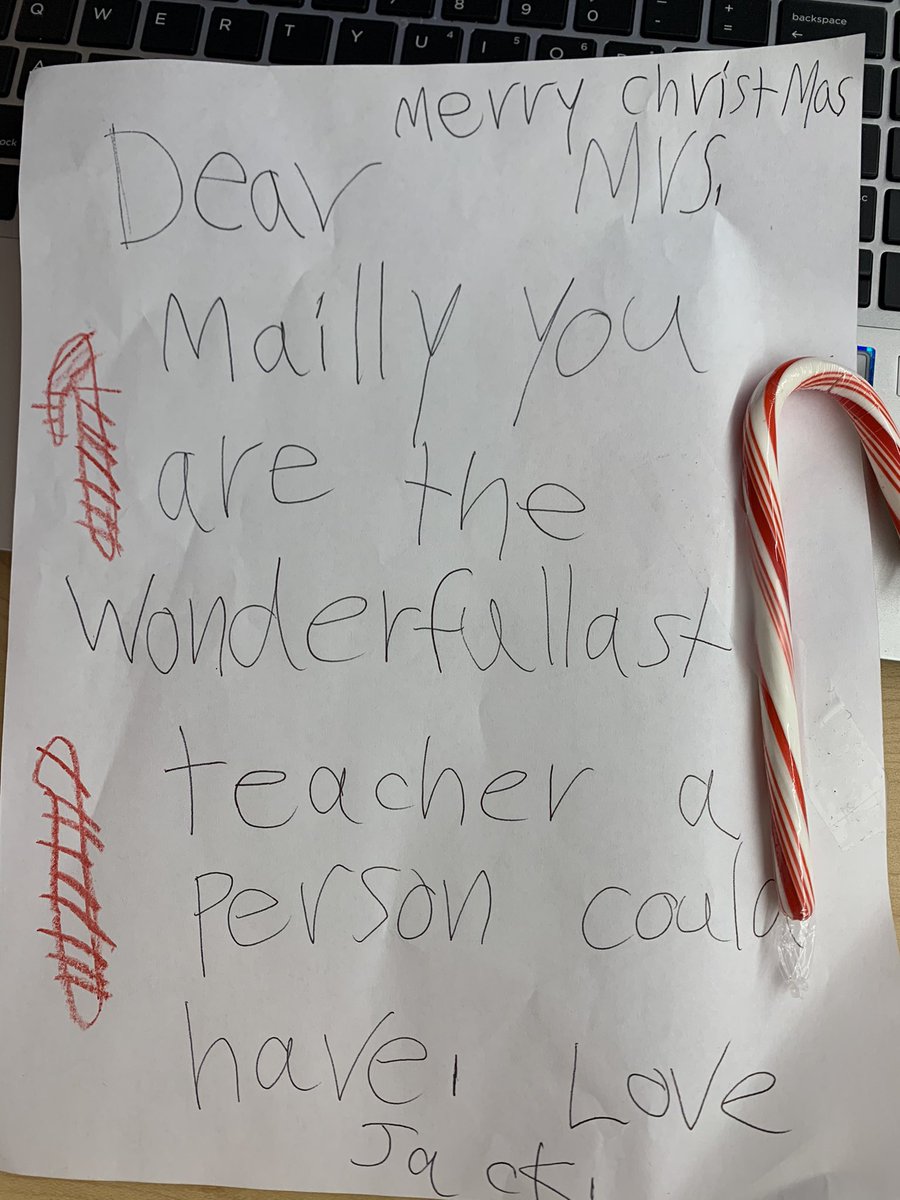 Q W E R T Y U 4 I 5 O 6 8 9 0 - _ + = backspace
A
ock
Merry ChristMas
Dear Mrs.
Mailly you
are the
Wonderfullast
teacher a
person could
have, Love
Jack.